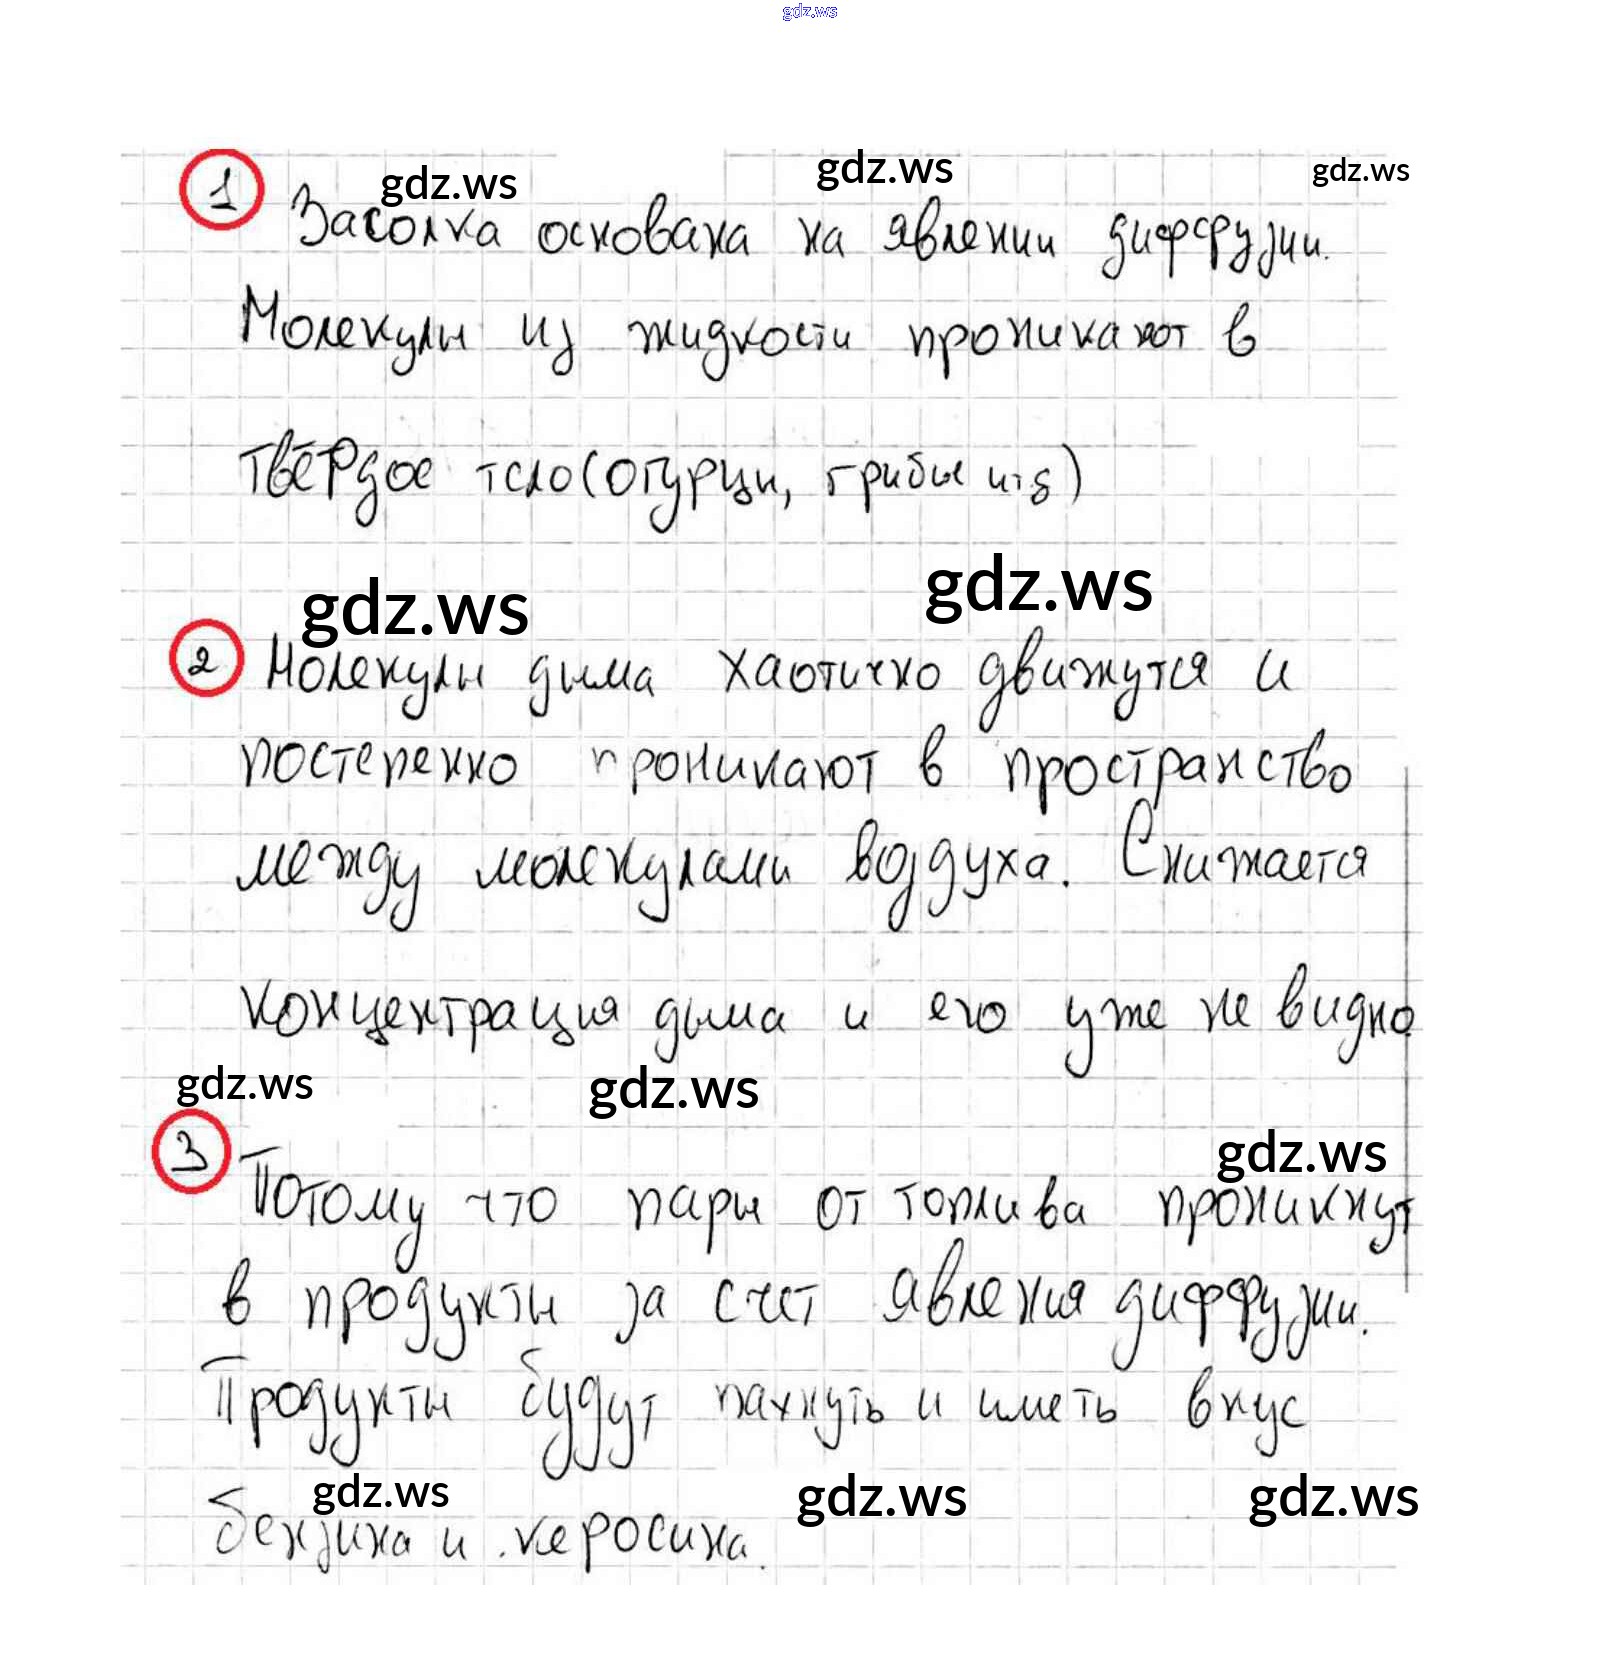 gdz.ws
gdz.ws gdz.ws gdz.ws
1 Засолка основана на явлении диффузии.
Молекулы из жидкости проникают в
твёрдое тело (огурцы, грибы
gdz.ws gdz.ws
2 Молекулы дыма хаотично движутся и
постепенно проникают в пространство
между молекулами воздуха. Снижается
концентрация дыма и его уже не видно
gdz.ws gdz.ws
gdz.ws
3 Потому что пары от топлива проникнут
в продукты за счет явления диффузии.
Продукты будут пахнуть и иметь вкус
gdz.ws gdz.ws gdz.ws
бензина и керосина.